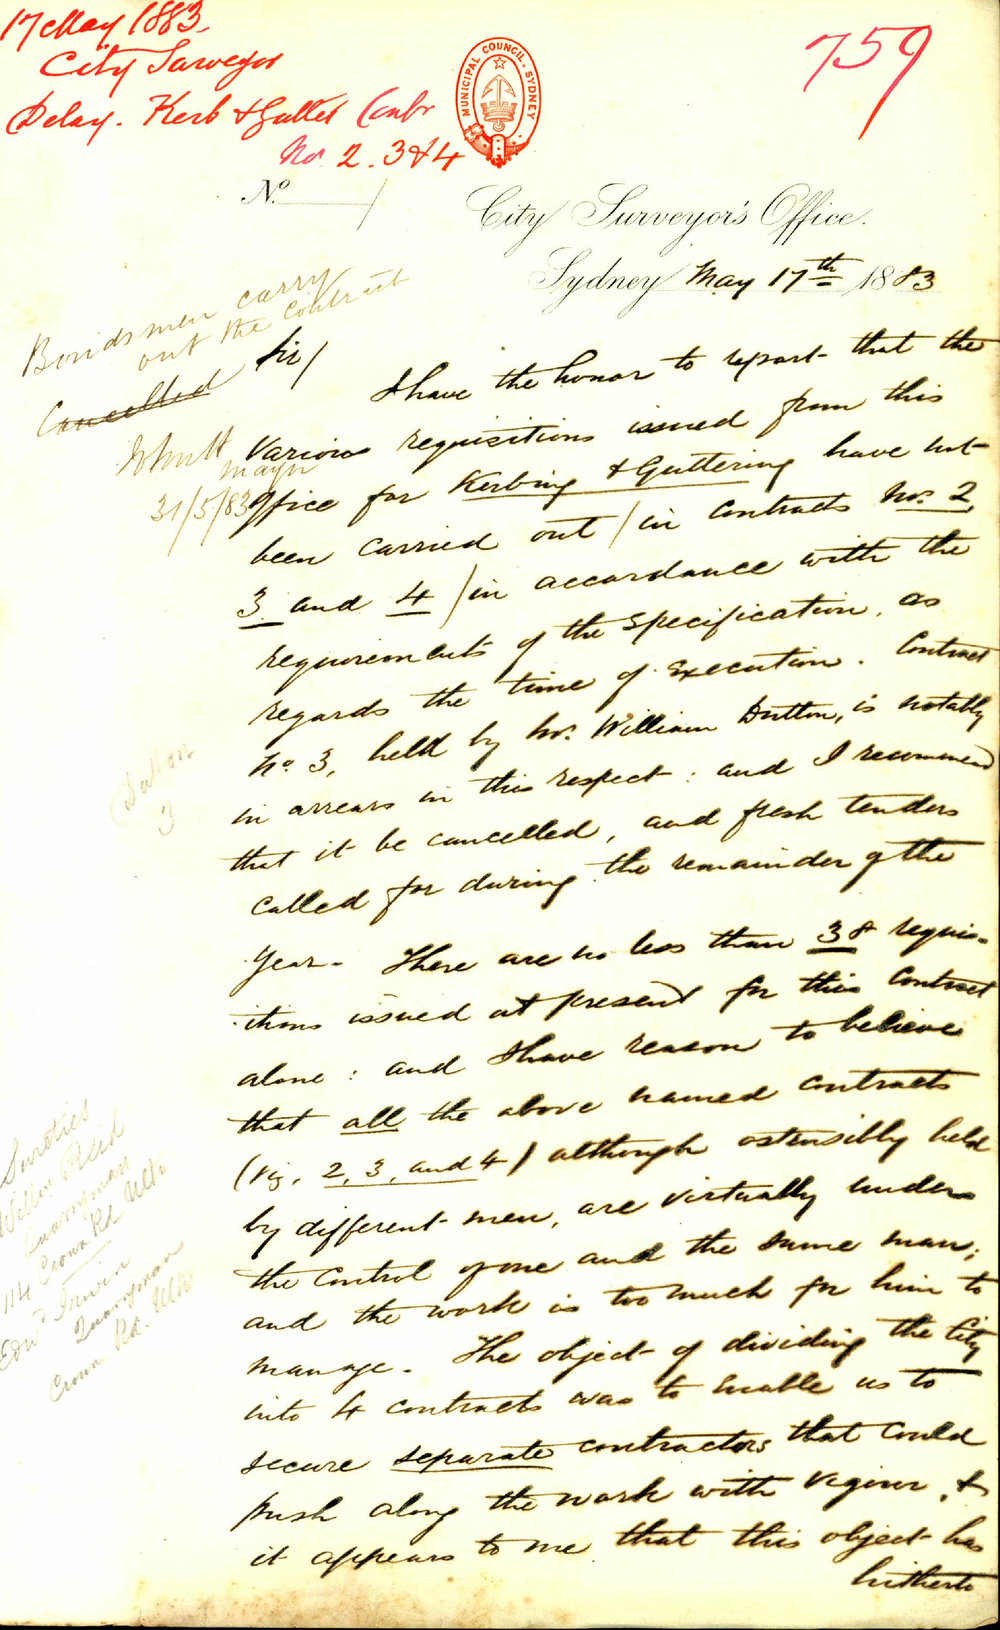 17 May 1883.
City Surveyor
Delay. Kerb & Gutter Contr
Nos. 2. 3 & 4
759
MUNICIPAL COUNCIL. SYDNEY
No. /
City Surveyor's Office.
Sydney May 17th 1883
Bondsmen carry
out the contract
Cancelled
Mayor
31/5/83
Sir/
I have the honor to report that the
various requisitions issued from this
Office for Kerbing & Guttering have not
been carried out / in contracts Nos. 2,
3 and 4 / in accordance with the
requirements of the specification, as
regards the time of execution. Contract
No. 3, held by Mr. William Dutton, is notably
in arrears in this respect: and I recommend
that it be cancelled, and fresh tenders
called for during the remainder of the
year. There are no less than 38 requis-
itions issued at present for this contract
alone: and I have reason to believe
that all the above named contracts
(viz. 2, 3, and 4) although ostensibly held
by different men, are virtually under
the control of one and the same man;
and the work is too much for him to
manage. The object of dividing the City
into 4 contracts was to enable us to
secure separate contractors that could
push along the work with vigour, &
it appears to me that this object has
hitherto
3
Sureties
Willm Reid
Quarryman
114 Crown Rd Ulto
Edwd Irwin
Quarryman
Crown Rd. Ulto